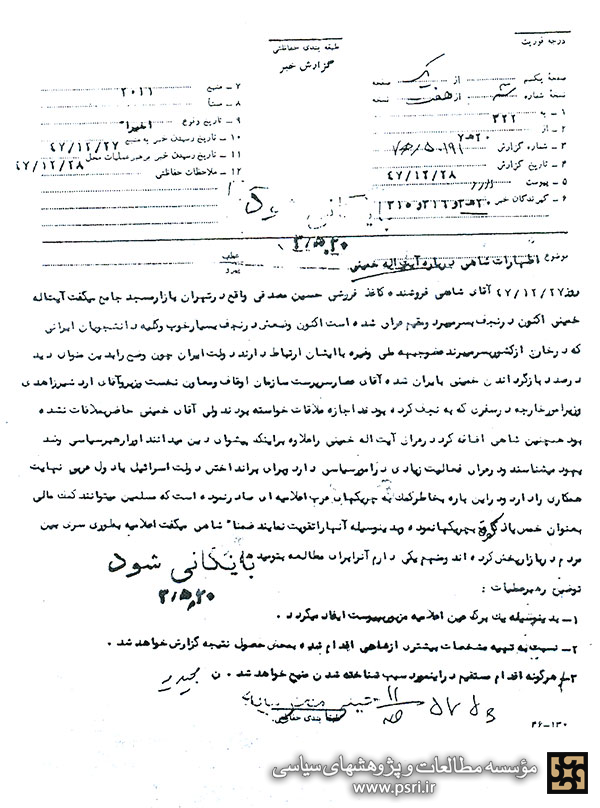 طبقه بندی حفاظتی
گزارش خبر
درجه فوریت
صفحه یکم از یک صفحه
نسخه شماره از هفت نسخه
۱ ـ به ۳۲۲
۲ ـ از ۲۰ ه‍ ۷
۳ ـ شماره گزارش
۴ ـ تاریخ گزارش ۴۷/۱۲/۲۸
۵ ـ پیوست دارد
۶ ـ گیرندگان خبر ۳۱۶ و ۳۱۵
۷ ـ منبع ۲۰۱۱
۸ ـ منشأ
۹ ـ تاریخ وقوع اخیرا"
۱۰ ـ تاریخ رسیدن خبر به منبع ۴۷/۱۲/۲۷
۱۱ ـ تاریخ رسیدن خبر برهبر عملیات محل ۴۷/۱۲/۲۸
۱۲ ـ ملاحظات حفاظتی
موضوع : اظهارات شاهی درباره آیت اله خمینی
عطف
پیرو
روز ۴۷/۱۲/۲۷ آقای شاهی فروشنده کاغذ فروشی حسین مصدقی واقع در تهران بازار مسجد جامع میگفت آیت اله
خمینی اکنون در نجف بسر میبرد و مقیم عراق شده است اکنون وضعش در نجف بسیار خوب و کلیه دانشجویان ایرانی
که در خارج از کشور بسر میبرند عضو جبهه ملی وغیره با ایشان ارتباط دارند دولت ایران چون وضع را بدین منوال دید
درصدد بازگرداندن خمینی بایران شده آقای عصار سرپرست سازمان اوقاف و معاون نخست وزیر و آقای اردشیر زاهدی
وزیر امور خارجه در سفری که به نجف کرده بودند اجازه ملاقات خواسته بودند ولی آقای خمینی حاضر بملاقات نشده
بود همچنین شاهی اضافه کرد در عراق آیت اله خمینی را علاوه بر اینکه پیشوای دین میدانند او را رهبر سیاسی و ضد
یهود میشناسند و در عراق فعالیت زیادی در امور سیاسی دارد و برای برانداختن دولت اسرائیل با دول عربی نهایت
همکاری را دارد و در این باره بخاطر کمک به چریکهای عرب اعلامیه ای صادر نموده است که مسلمین میتوانند کمک مالی
بعنوان خمس یا ذکوة به چریکها نموده و بدینوسیله آنها را تقویت نمایند ضمنا" شاهی میگفت اعلامیه بطوری سری بین
مردم در بازار پخش کرده اند و منهم یکی دارم آنرا برای مطالعه بتو میدهم
بایگانی شود
۳/۵,۲۰
توضیح رهبر عملیات :
۱ـ بدینوسیله یک برگ عین اعلامیه مزبور به پیوست ایفاد میگردد .
۲ـ نسبت به تهیه مشخصات بیشتری از شاهی اقدام شده بمحض حصول نتیجه گزارش خواهد شد .
۳ـ هرگونه اقدام مستقیم در اینمورد سبب شناخته شدن منبع خواهد شد . ن
طبقه بندی حفاظتی
۴۶-۱۳۰
مؤسسه مطالعات و پژوهشهای سیاسی
www.psri.ir